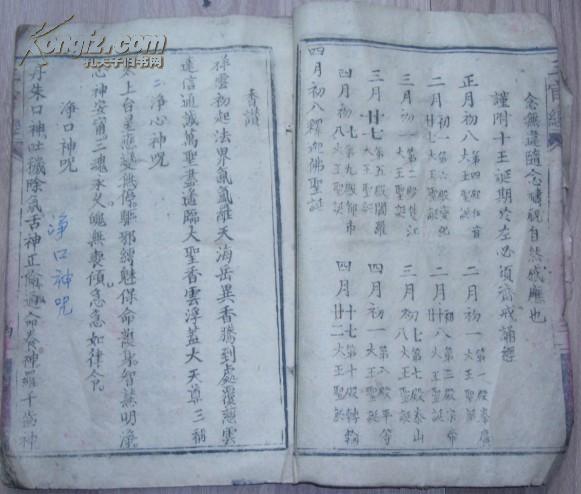 念無違隨心禱祝自然感應也
謹附十王誕期於左必須齋戒誦經
正月初八 第四殿伍官大王聖誕
二月初一 第一殿秦廣大王聖誕
二月初一 第六殿大王聖誕
二月初八 第三殿大王聖誕
三月初一 第二殿楚江大王聖誕
三月初七 第七殿泰山大王聖誕
三月廿七 第五殿閻羅大王聖誕
四月初一 第八殿平等大王聖誕
四月初八 第九殿都市大王聖誕
四月十七 第十殿轉輪大王聖誕
四月初八釋迦佛聖誕
四月廿二
三官經
香讚
祥雲初起法界氤氳離天海岳異香騰到處覆慈雲
達信通誠萬聖盡遙臨大聖香雲浮蓋大天尊三稱
淨心神咒
太上台星應變無停驅邪縛魅保命護身智慧明淨
心神安甯三魂永久魄無喪傾急急如律令
淨口神咒
丹朱口神吐穢除氛舌神正倫通命養神羅千齒神
淨口神咒
Kongfz.com
孔夫子旧书网